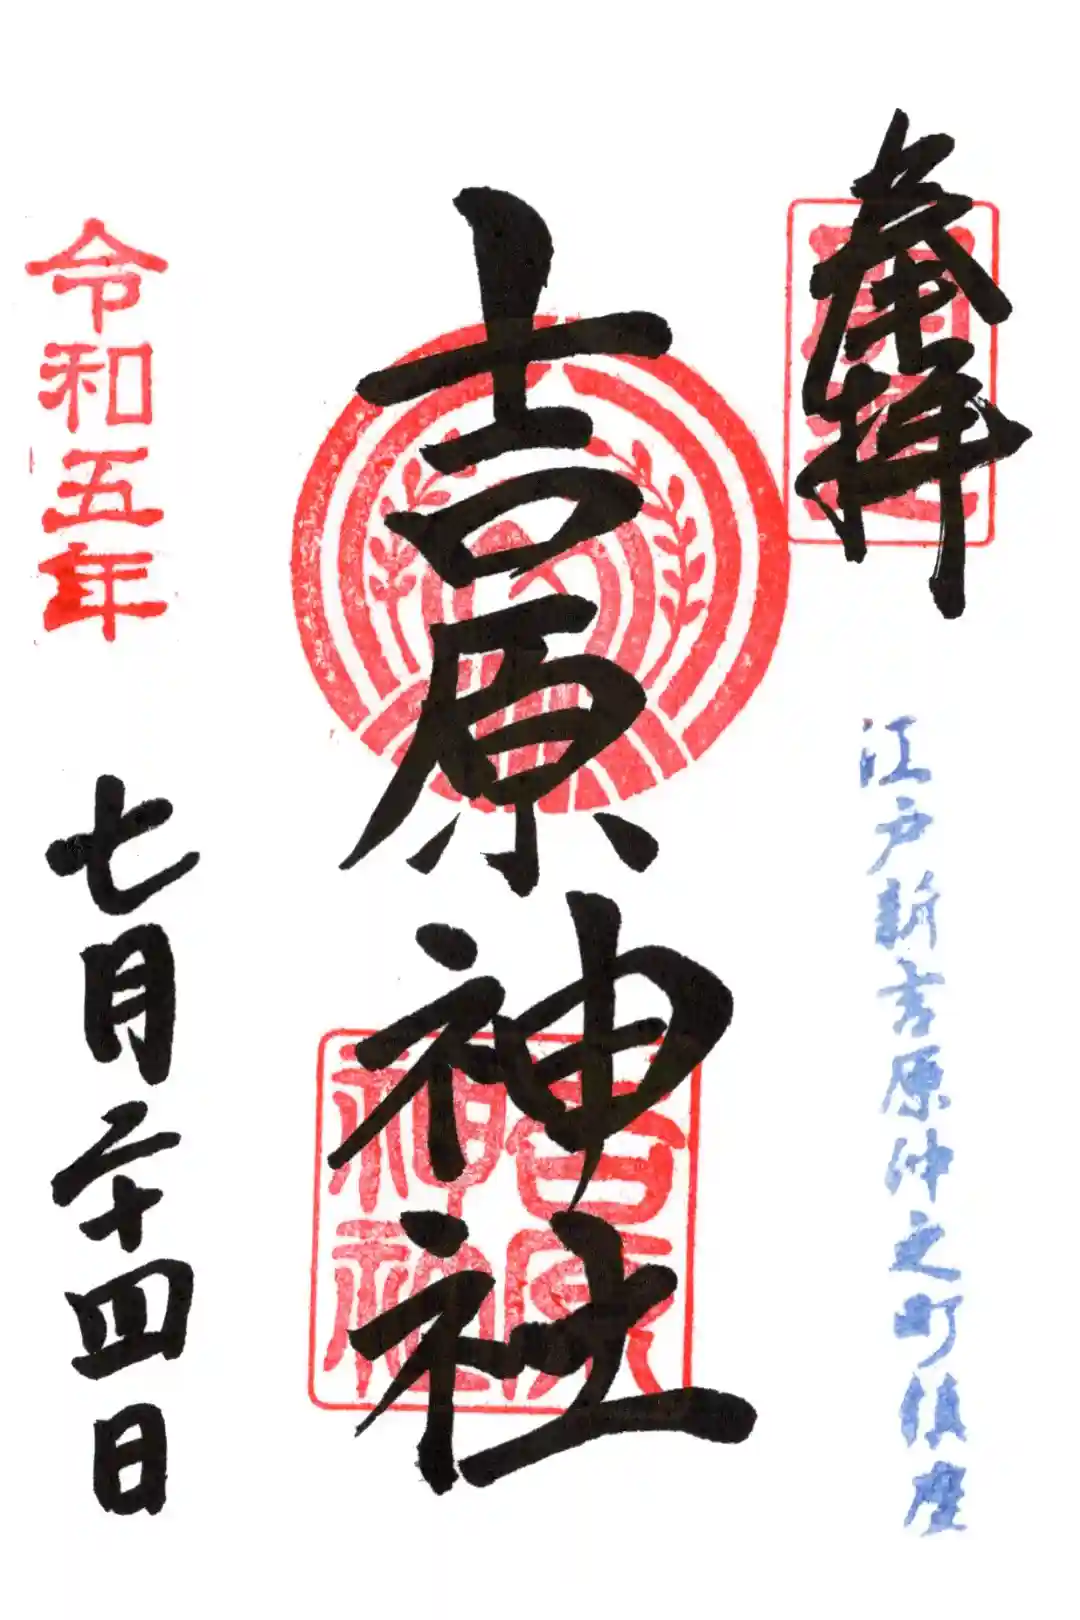 奉拝
江戸新吉原仲之町鎮座
吉原神社
吉原
神社
令和五年
七月二十四日